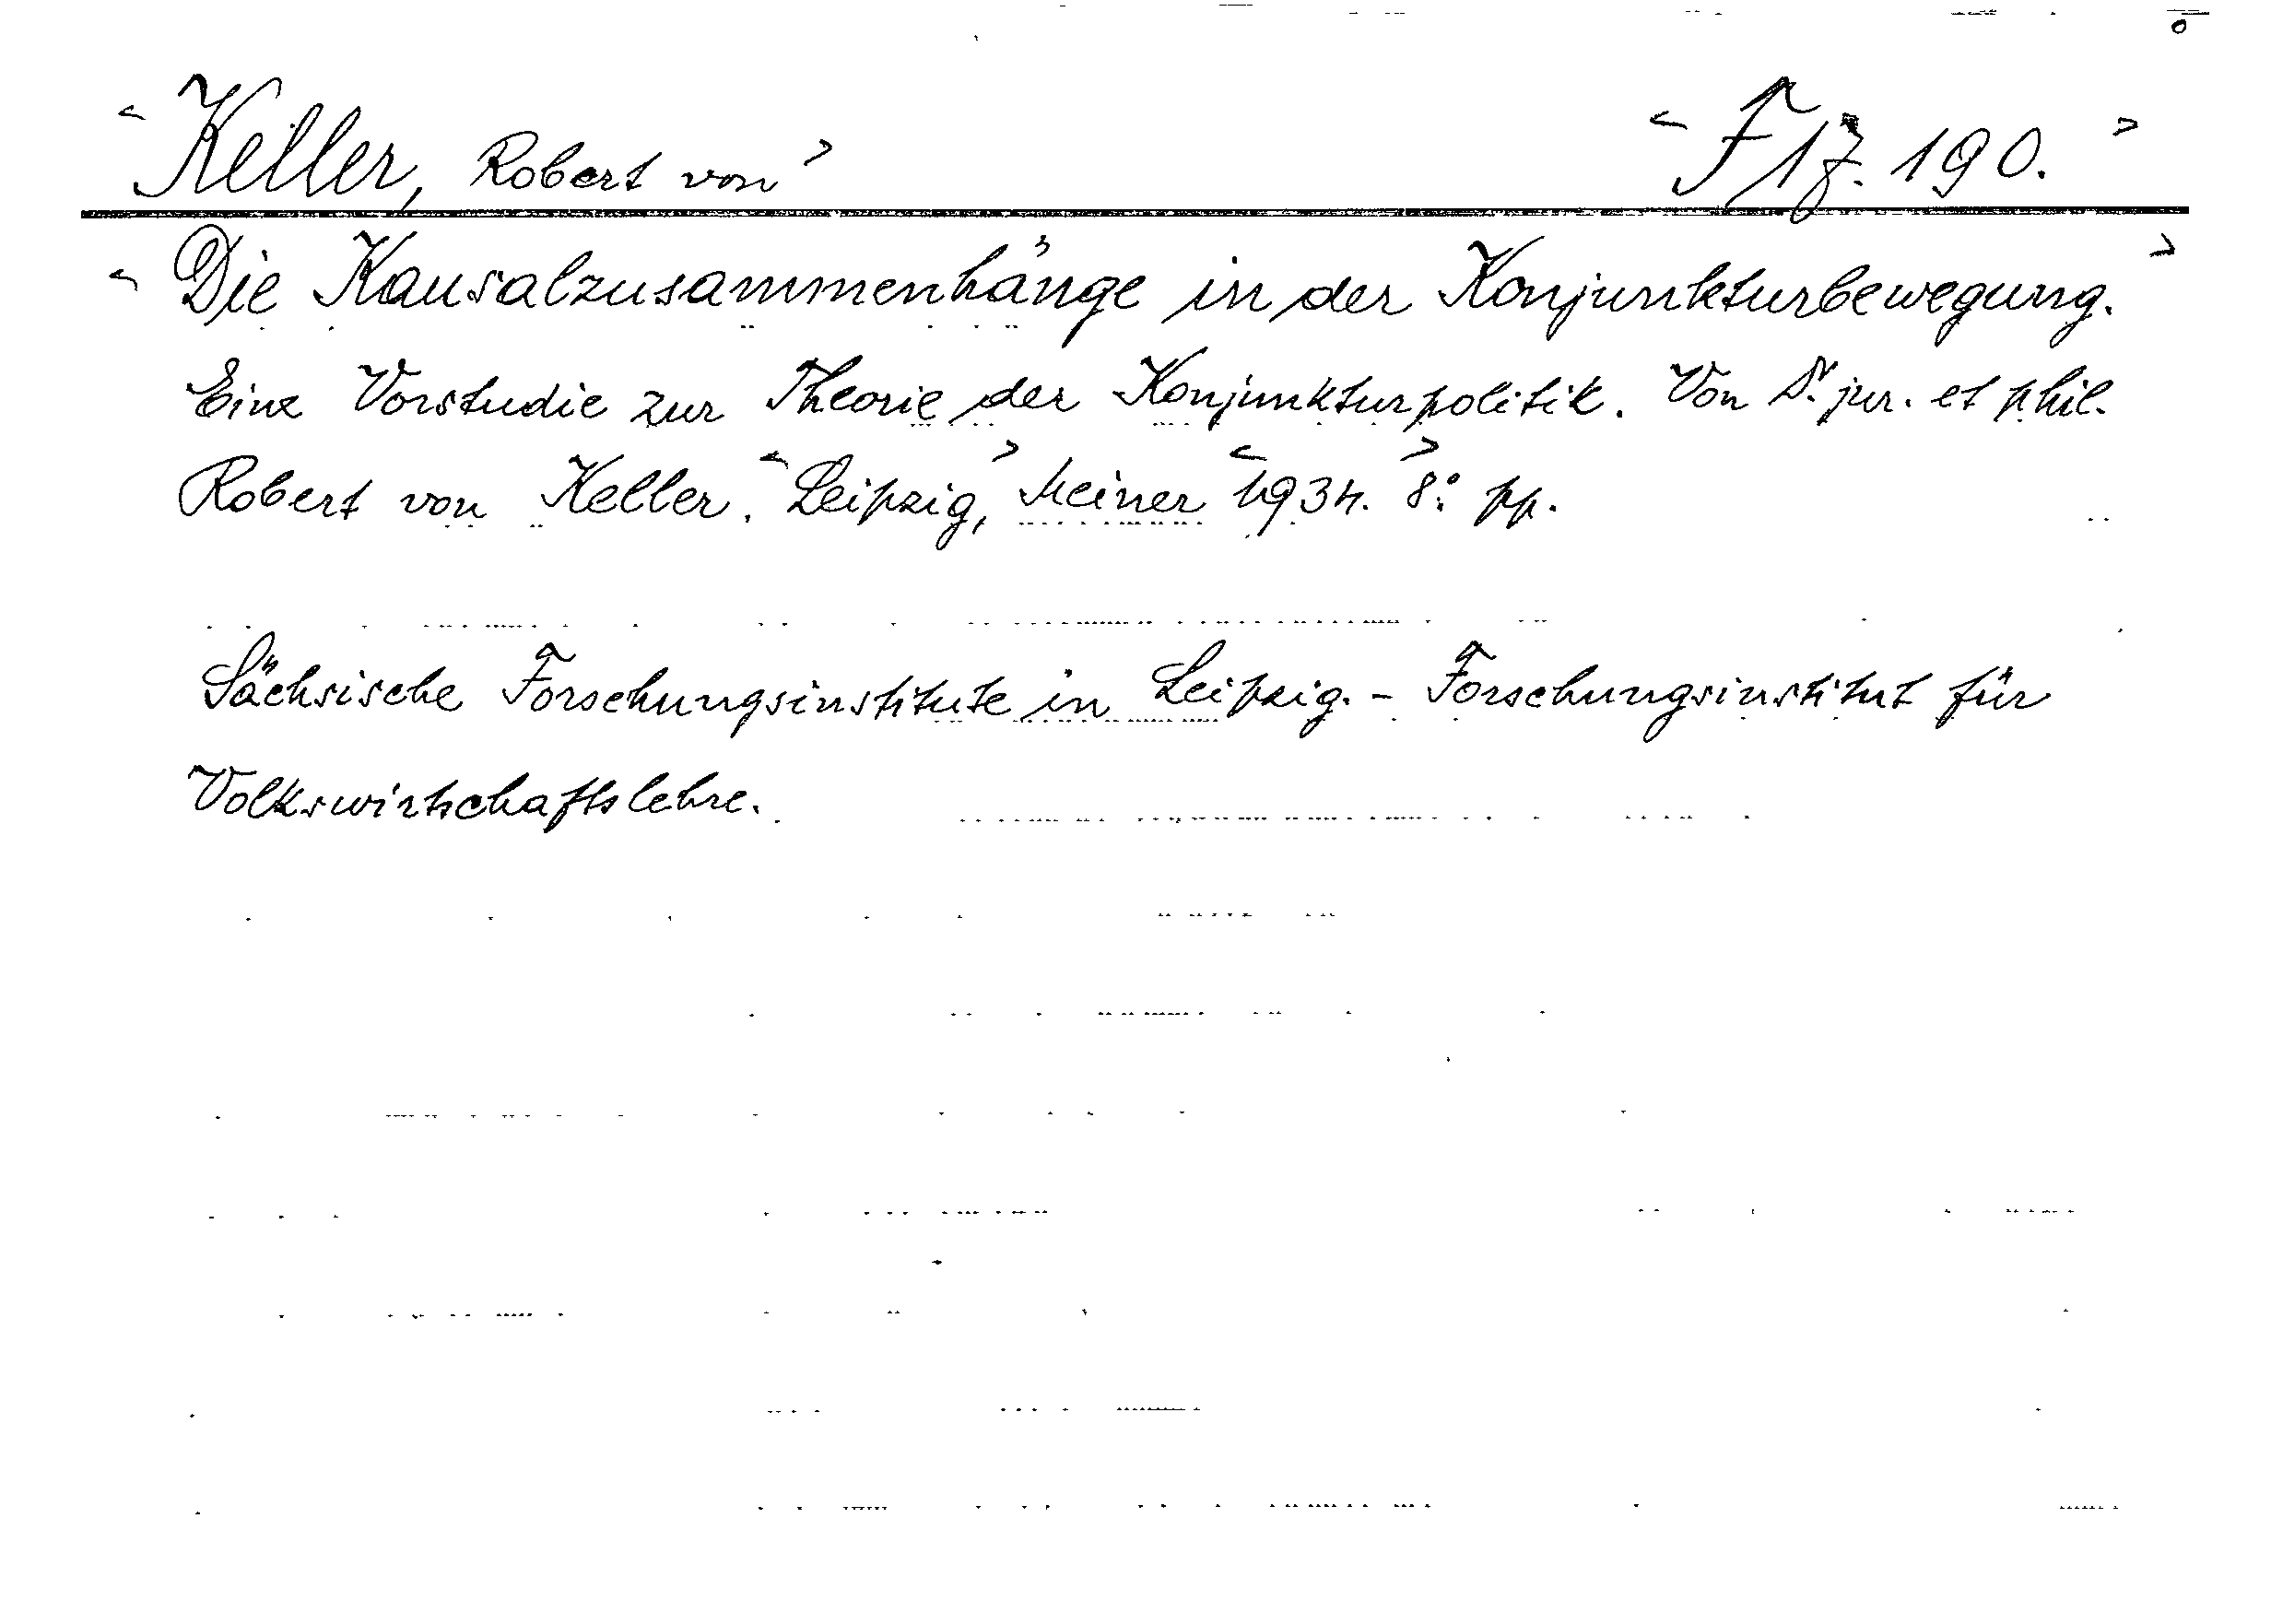 <Keller, Robert von> <F 17. 190.>
<Die Kausalzusammenhänge in der Konjunkturbewegung.>
Eine Vorstudie zur Theorie der Konjunkturpolitik. Von Dr. jur. et phil.
Robert von Keller. <Leipzig,> Meiner <1934. 8°.> pp.
Sächsische Forschungsinstitute in Leipzig. - Forschungsinstitut für
Volkswirtschaftslehre.